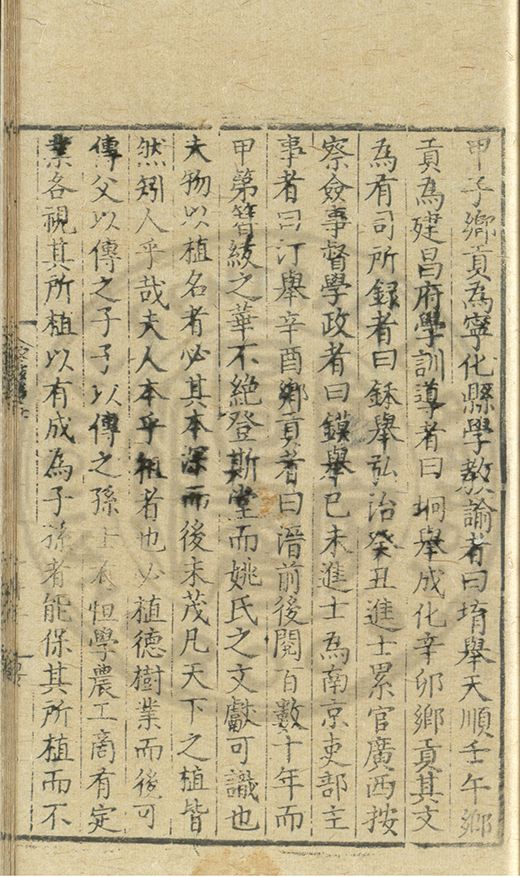 甲子鄉貢為寧化縣學教諭者曰堉舉天順壬午鄉
貢為建昌府學訓導者曰坰舉成化辛卯鄉貢其文
為有司所録者曰鉌舉弘治癸丑進士累官廣西按
察僉事督學政者曰鏌舉己未進士為南京吏部主
事者曰汀舉辛酉鄉貢者曰濳前後閱百數十年而
甲第簪紱之華不絶登斯堂而姚氏之文獻可識也
夫物以植名者必其本深而後末茂凡天下之植皆
然矧人乎哉夫人本乎祖者也必植德樹業而後可
傳父以傳之子子以傳之孫士有恒學農工商有定
業各視其所植以有成為子孫者能保其所植而不